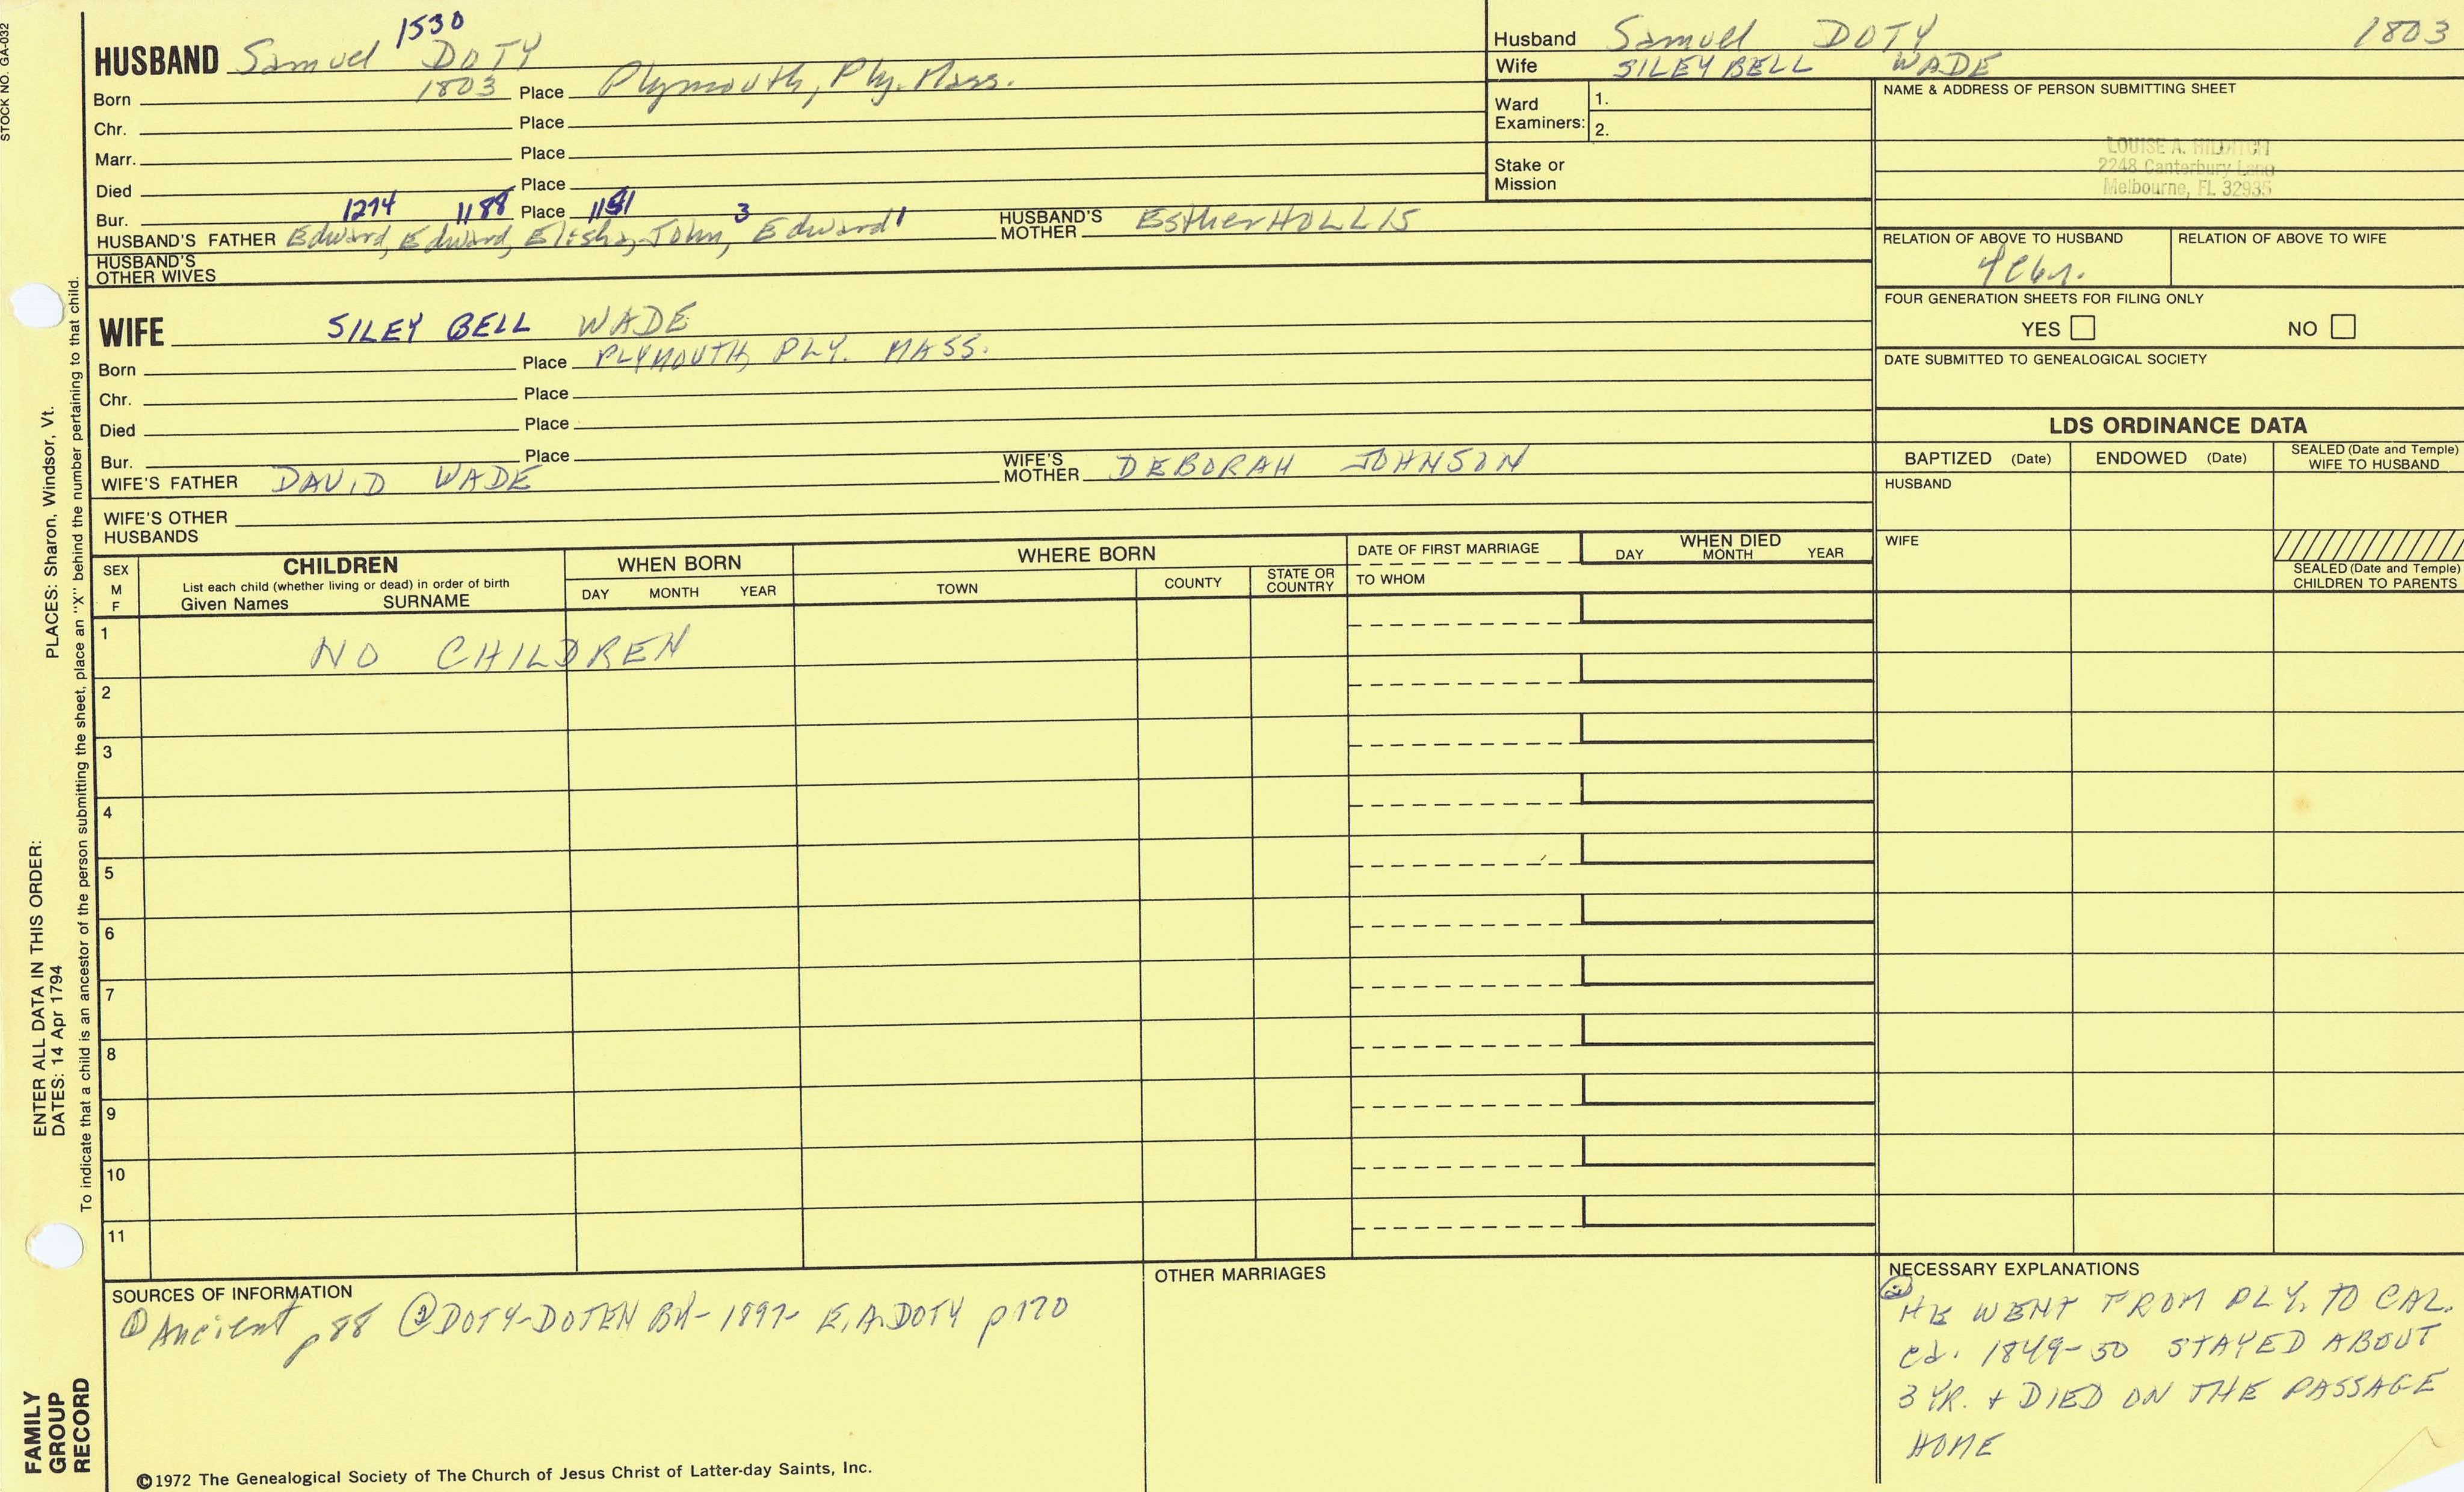 STOCK NO. GA-032
1530
HUSBAND Samuel DOTY
Born 1803 Place Plymouth, Ply. Mass.
Chr. Place
Marr. Place
Died Place
1274 1188 1181 3
Bur. Place
HUSBAND'S FATHER Edward, Edward, Elisha, John, Edward 1 HUSBAND'S MOTHER Esther HOLLIS
HUSBAND'S OTHER WIVES
WIFE SILEY BELL WADE
Born Place PLYMOUTH, PLY. MASS.
Chr. Place
Died Place
Bur. Place
WIFE'S FATHER DAVID WADE WIFE'S MOTHER DEBORAH JOHNSON
WIFE'S OTHER HUSBANDS
Husband Samuel DOTY 1803
Wife SILEY BELL WADE
Ward Examiners: 1.
2.
Stake or Mission
NAME & ADDRESS OF PERSON SUBMITTING SHEET
LOUISE A. HILDITCH
2248 Canterbury Lane
Melbourne, FL 32935
RELATION OF ABOVE TO HUSBAND RELATION OF ABOVE TO WIFE
FOUR GENERATION SHEETS FOR FILING ONLY
YES NO
DATE SUBMITTED TO GENEALOGICAL SOCIETY
LDS ORDINANCE DATA
BAPTIZED (Date) ENDOWED (Date) SEALED (Date and Temple) WIFE TO HUSBAND
HUSBAND
WIFE
SEALED (Date and Temple) CHILDREN TO PARENTS
SEX M F
CHILDREN
List each child (whether living or dead) in order of birth
Given Names SURNAME
WHEN BORN
DAY MONTH YEAR
WHERE BORN
TOWN COUNTY STATE OR COUNTRY
DATE OF FIRST MARRIAGE
TO WHOM
WHEN DIED
DAY MONTH YEAR
1 NO CHILDREN
2
3
4
5
6
7
8
9
10
11
SOURCES OF INFORMATION
① Ancient p 88 ② DOTY-DOTEN BK- 1897- E.A. DOTY p 170
OTHER MARRIAGES
NECESSARY EXPLANATIONS
② HE WENT FROM PLY. TO CAL.
1849-50 STAYED ABOUT
3 YR. + DIED ON THE PASSAGE
HOME
©1972 The Genealogical Society of The Church of Jesus Christ of Latter-day Saints, Inc.
FAMILY GROUP RECORD
ENTER ALL DATA IN THIS ORDER:
DATES: 14 Apr 1794
PLACES: Sharon, Windsor, Vt.
To indicate that a child is an ancestor of the person submitting the sheet, place an "X" behind the number pertaining to that child.